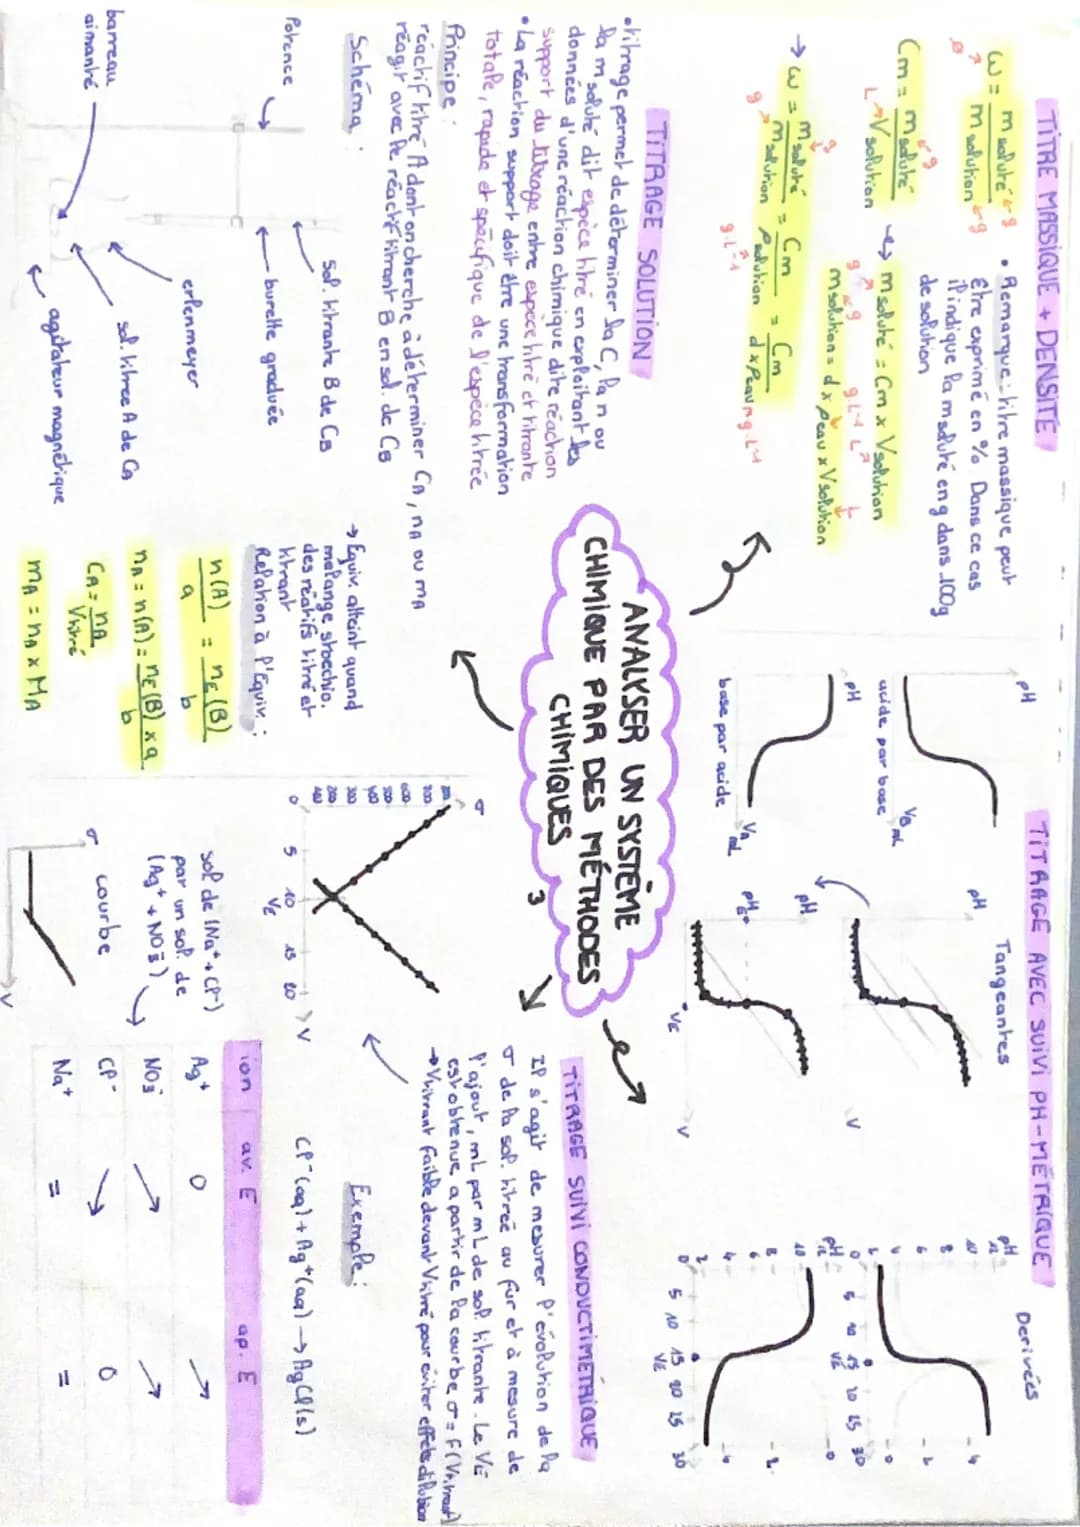 TITRE MASSIQUE + DENSITÉ
ω = m soluté ← g / m solution ← g
• Remarque : titre massique peut
être exprimé en % Dans ce cas
il indique la m soluté en g dans 100g
de solution
Cm = m soluté ← g / V solution
L
→ m soluté = Cm × V solution
g g.L⁻¹ L
m solution = d × ρeau × V solution
→ ω = m soluté / m solution = Cm / ρ solution = Cm / d × ρeau
g g g.L⁻¹
TITRAGE SOLUTION
• titrage permet de déterminer la C, la n ou
la m soluté dit espèce titré en exploitant les
données d'une réaction chimique dite réaction
support du titrage entre espèce titré et titrante
• La réaction support doit être une transformation
totale, rapide et spécifique de l'espèce titrée
Principe :
réactif titré A dont on cherche à déterminer CA, nA ou mA
réagit avec le réactif titrant B en sol. de CB
Schéma :
Potence
sol. titrante B de CB
burette graduée
erlenmeyer
sol. titrée A de CA
agitateur magnétique
barreau
aimanté
→ Equiv. atteint quand
mélange stoechio.
des réactifs titré et
titrant
Relation à l'Equiv. :
n(A) / a = nE(B) / b
nA = n(A) = nE(B) × a / b
CA = nA / Vtitré
mA = nA × MA
ANALYSER UN SYSTÈME
CHIMIQUE PAR DES MÉTHODES
CHIMIQUES 3
TITRAGE AVEC SUIVI PH-MÉTRIQUE
pH
VB mL
acide par base
pH
VA mL
base par acide
Tangeantes
pH
V
pH
pHE
VE
V
Derivées
pH
12
10
8
6
4
2
0 5 10 15 20 25 30
VE
4
2
0
pH
12
10
8
6
4
2
0 5 10 15 20 25 30
VE
0
-2
-4
TITRAGE SUIVI CONDUCTIMÉTRIQUE
Il s'agit de mesurer l'évolution de la
σ de la sol. titrée au fur et à mesure de
l'ajout, mL par mL de sol. titrante. Le VE
est obtenue à partir de la courbe σ = F(Vtitrant)
→ Vtitrant faible devant Vtitré pour éviter effets dilution
Exemple :
Cl⁻(aq) + Ag⁺(aq) → AgCl(s)
σ
700
600
500
400
300
200
0 5 10 15 20 V
VE
sol de (Na⁺ + Cl⁻)
par un sol. de
(Ag⁺ + NO₃⁻)
σ courbe
V
ion av. E ap. E
Ag⁺ 0 ↗
NO₃⁻ ↗ ↗
Cl⁻ ↘ 0
Na⁺ = =